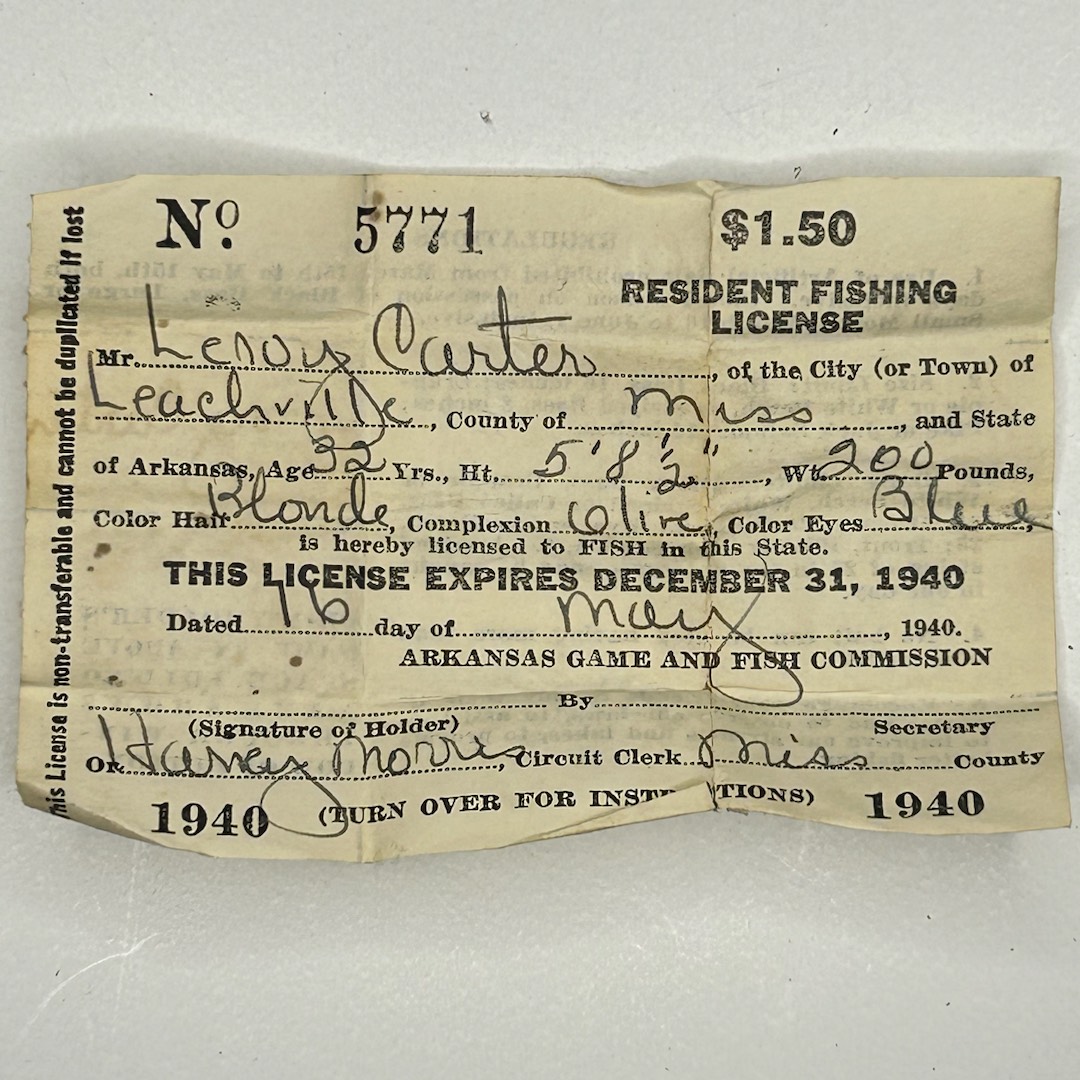 No. 5771 $1.50
RESIDENT FISHING
LICENSE
Mr. Leroy Carter, of the City (or Town) of
Leachville, County of Miss, and State
of Arkansas, Age 32 Yrs., Ht. 5' 8 1/2", Wt. 200 Pounds,
Color Hair Blonde, Complexion Olive, Color Eyes Blue,
is hereby licensed to FISH in this State.
THIS LICENSE EXPIRES DECEMBER 31, 1940
Dated 16 day of May, 1940.
ARKANSAS GAME AND FISH COMMISSION
By
(Signature of Holder) Secretary
Or Harvey Morris, Circuit Clerk Miss County
1940 (TURN OVER FOR INST TIONS) 1940
his License is non-transferable and cannot be duplicated if lost